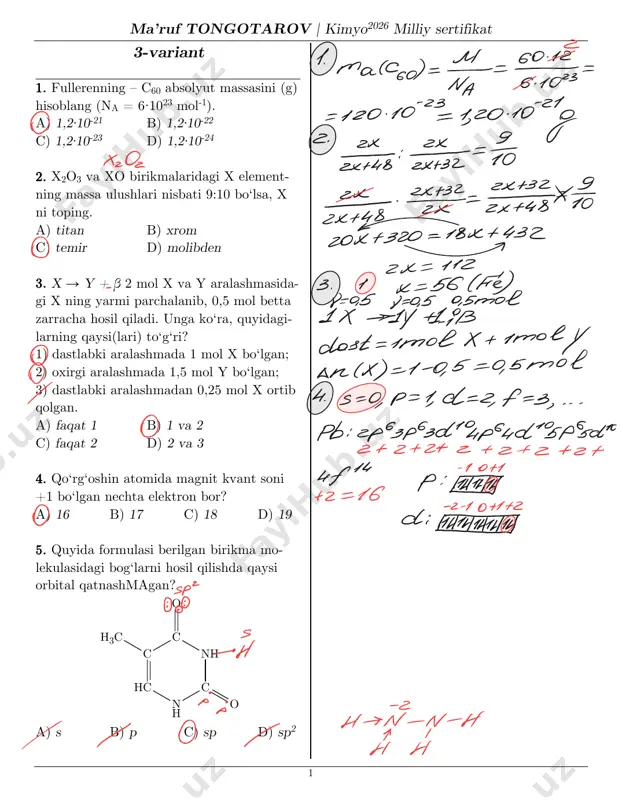 Ma'ruf TONGOTAROV | Kimyo²⁰²⁶ Milliy sertifikat
3-variant
1. Fullerenning – C₆₀ absolyut massasini (g)
hisoblang (N_A = 6·10²³ mol⁻¹).
A) 1,2·10⁻²¹ B) 1,2·10⁻²²
C) 1,2·10⁻²³ D) 1,2·10⁻²⁴
X₂O₂
2. X₂O₃ va XO birikmalaridagi X element-
ning massa ulushlari nisbati 9:10 bo'lsa, X
ni toping.
A) titan B) xrom
C) temir D) molibden
3. X → Y + β 2 mol X va Y aralashmasida-
gi X ning yarmi parchalanib, 0,5 mol betta
zarracha hosil qiladi. Unga ko'ra, quyidagi-
larning qaysi(lari) to'g'ri?
1) dastlabki aralashmada 1 mol X bo'lgan;
2) oxirgi aralashmada 1,5 mol Y bo'lgan;
3) dastlabki aralashmadan 0,25 mol X ortib
qolgan.
A) faqat 1 B) 1 va 2
C) faqat 2 D) 2 va 3
4. Qo'rg'oshin atomida magnit kvant soni
+1 bo'lgan nechta elektron bor?
A) 16 B) 17 C) 18 D) 19
5. Quyida formulasi berilgan birikma mo-
lekulasidagi bog'larni hosil qilishda qaysi
orbital qatnashMAgan?
sp²
O
H₃C C s
C NH H
HC C
N p p O
H
A) s B) p C) sp D) sp²
1. ma(C₆₀) = M/N_A = 60·12/6·10²³ =
2
= 120·10⁻²³ = 1,20·10⁻²¹ g
2. 2x/2x+48 : 2x/2x+32 = 9/10
2x/2x+48 · 2x+32/2x = 2x+32/2x+48 9/10
20x+320 = 18x+432
2x = 112
3. 1 x = 56 (Fe)
0,5 0,5mol
1X → 1Y + 1β
dast = 1mol X + 1mol Y
Δn(X) = 1-0,5 = 0,5 mol
4. s=0, p=1, d=2, f=3, ...
Pb: 2p⁶3p⁶3d¹⁰4p⁶4d¹⁰5p⁶5d¹⁰
2+2+2+2+2+2+2+
4f¹⁴
+2=16
p: -1 0 +1
d: -2 -1 0 +1 +2
-2
H→N–N–H
H H
1
FaylHub.uz
FaylHub.uz
FaylHub.uz